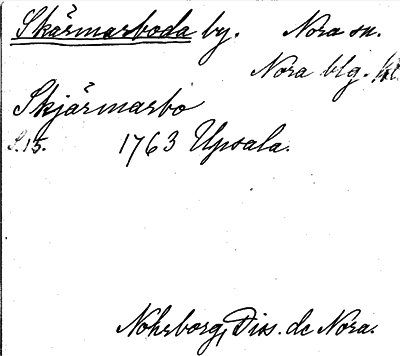 Skärmarboda by. Nora sn.
Nora blg.
Skjärmarbo
S.15. 1763 Upsala.
Nohrborg, Diss. de Nora.